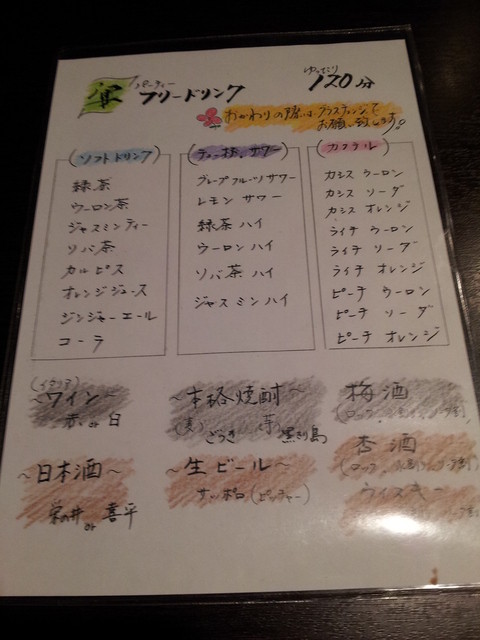 宴 パーティー フリードリンク ゆっくり 120分
おかわりの際は グラスチェンジで
お願い致します!
(ソフトドリンク)
緑茶
ウーロン茶
ジャスミンティー
ソバ茶
カルピス
オレンジジュース
ジンジャーエール
コーラ
グレープフルーツサワー
レモン サワー
緑茶 ハイ
ウーロン ハイ
ソバ茶 ハイ
ジャスミン ハイ
(カクテル)
カシス ウーロン
カシス ソーダ
カシス オレンジ
ライチ ウーロン
ライチ ソーダ
ライチ オレンジ
ピーチ ウーロン
ピーチ ソーダ
ピーチ オレンジ
(イタリア)
~ワイン~
赤 or 白
~日本酒~
or 喜平
~本格焼酎~
(麦) 芋 黒きり島
~生ビール~
サッポロ (ピッチャー)
梅酒
杏酒
ウイスキー